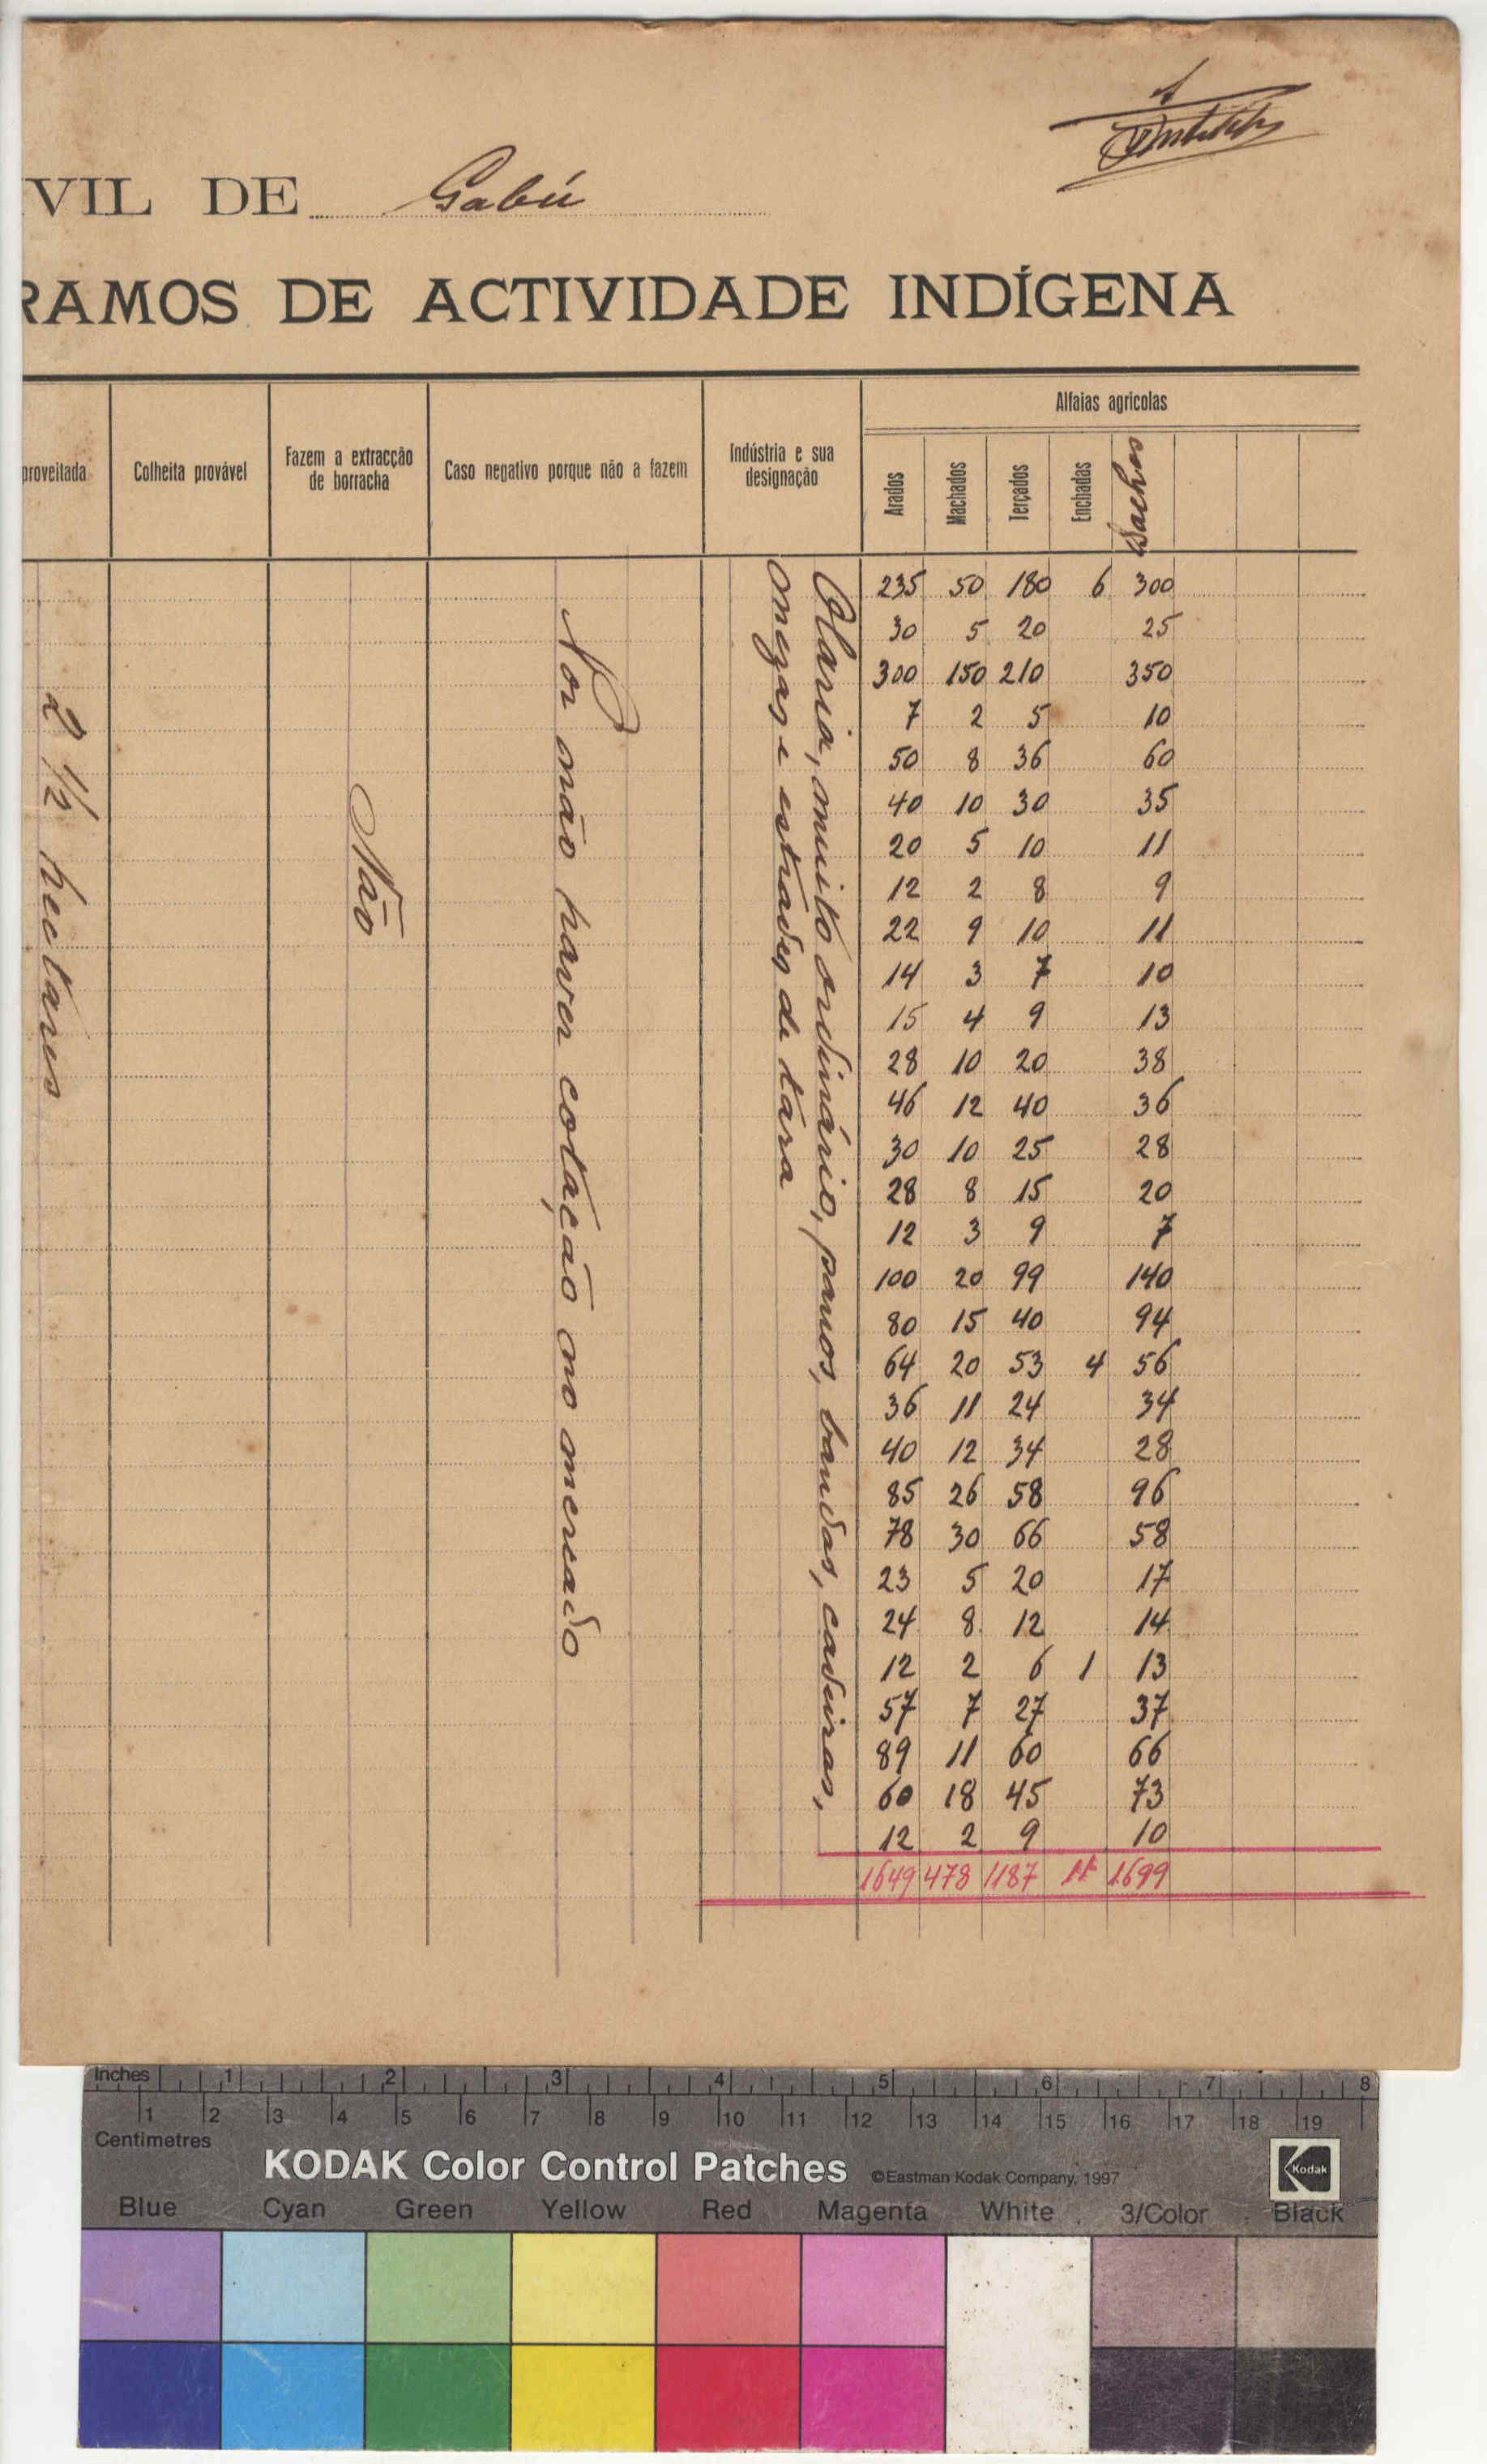 VIL DE Gabú
RAMOS DE ACTIVIDADE INDÍGENA
proveitada
Colheita provável
Fazem a extracção
de borracha
Caso negativo porque não a fazem
Indústria e sua
designação
Alfaias agrícolas
Arados
Machados
Terçados
Enchadas
Sachos
2 ½ hectares
Não
Por não haver cotação no mercado
Olaria, muito ordinário, panos, bandas, cadeiras,
mezas e estrados de tara
235 50 180 6 300
30 5 20 25
300 150 210 350
7 2 5 10
50 8 36 60
40 10 30 35
20 5 10 11
12 2 8 9
22 9 10 11
14 3 7 10
15 4 9 13
28 10 20 38
46 12 40 36
30 10 25 28
28 8 15 20
12 3 9 7
100 20 99 140
80 15 40 94
64 20 53 4 56
36 11 24 34
40 12 34 28
85 26 58 96
78 30 66 58
23 5 20 17
24 8 12 14
12 2 6 1 13
57 7 27 37
89 11 60 66
60 18 45 73
12 2 9 10
1649 478 1187 11 1699
Inches 1 2 3 4 5 6 7 8
1 2 3 4 5 6 7 8 9 10 11 12 13 14 15 16 17 18 19
Centimetres
KODAK Color Control Patches ©Eastman Kodak Company, 1997 Kodak
Blue Cyan Green Yellow Red Magenta White 3/Color Black